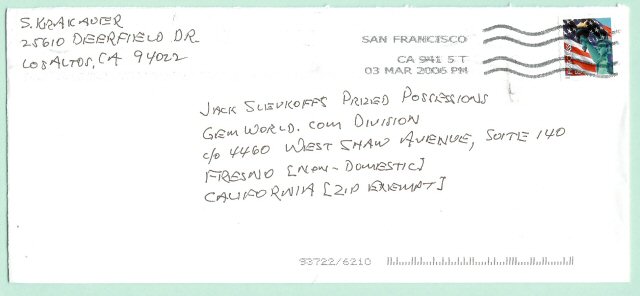 S. KRAKAUER
25610 DEERFIELD DR
LOS ALTOS, CA 94022
SAN FRANCISCO
CA 941 5 T
03 MAR 2006 PM
JACK SLEVKOFFS PRIZED POSSESSIONS
GEMWORLD.COM DIVISION
c/o 4460 WEST SHAW AVENUE, SUITE 140
FRESNO [NON-DOMESTIC]
CALIFORNIA [ZIP EXEMPT]
93722/6210